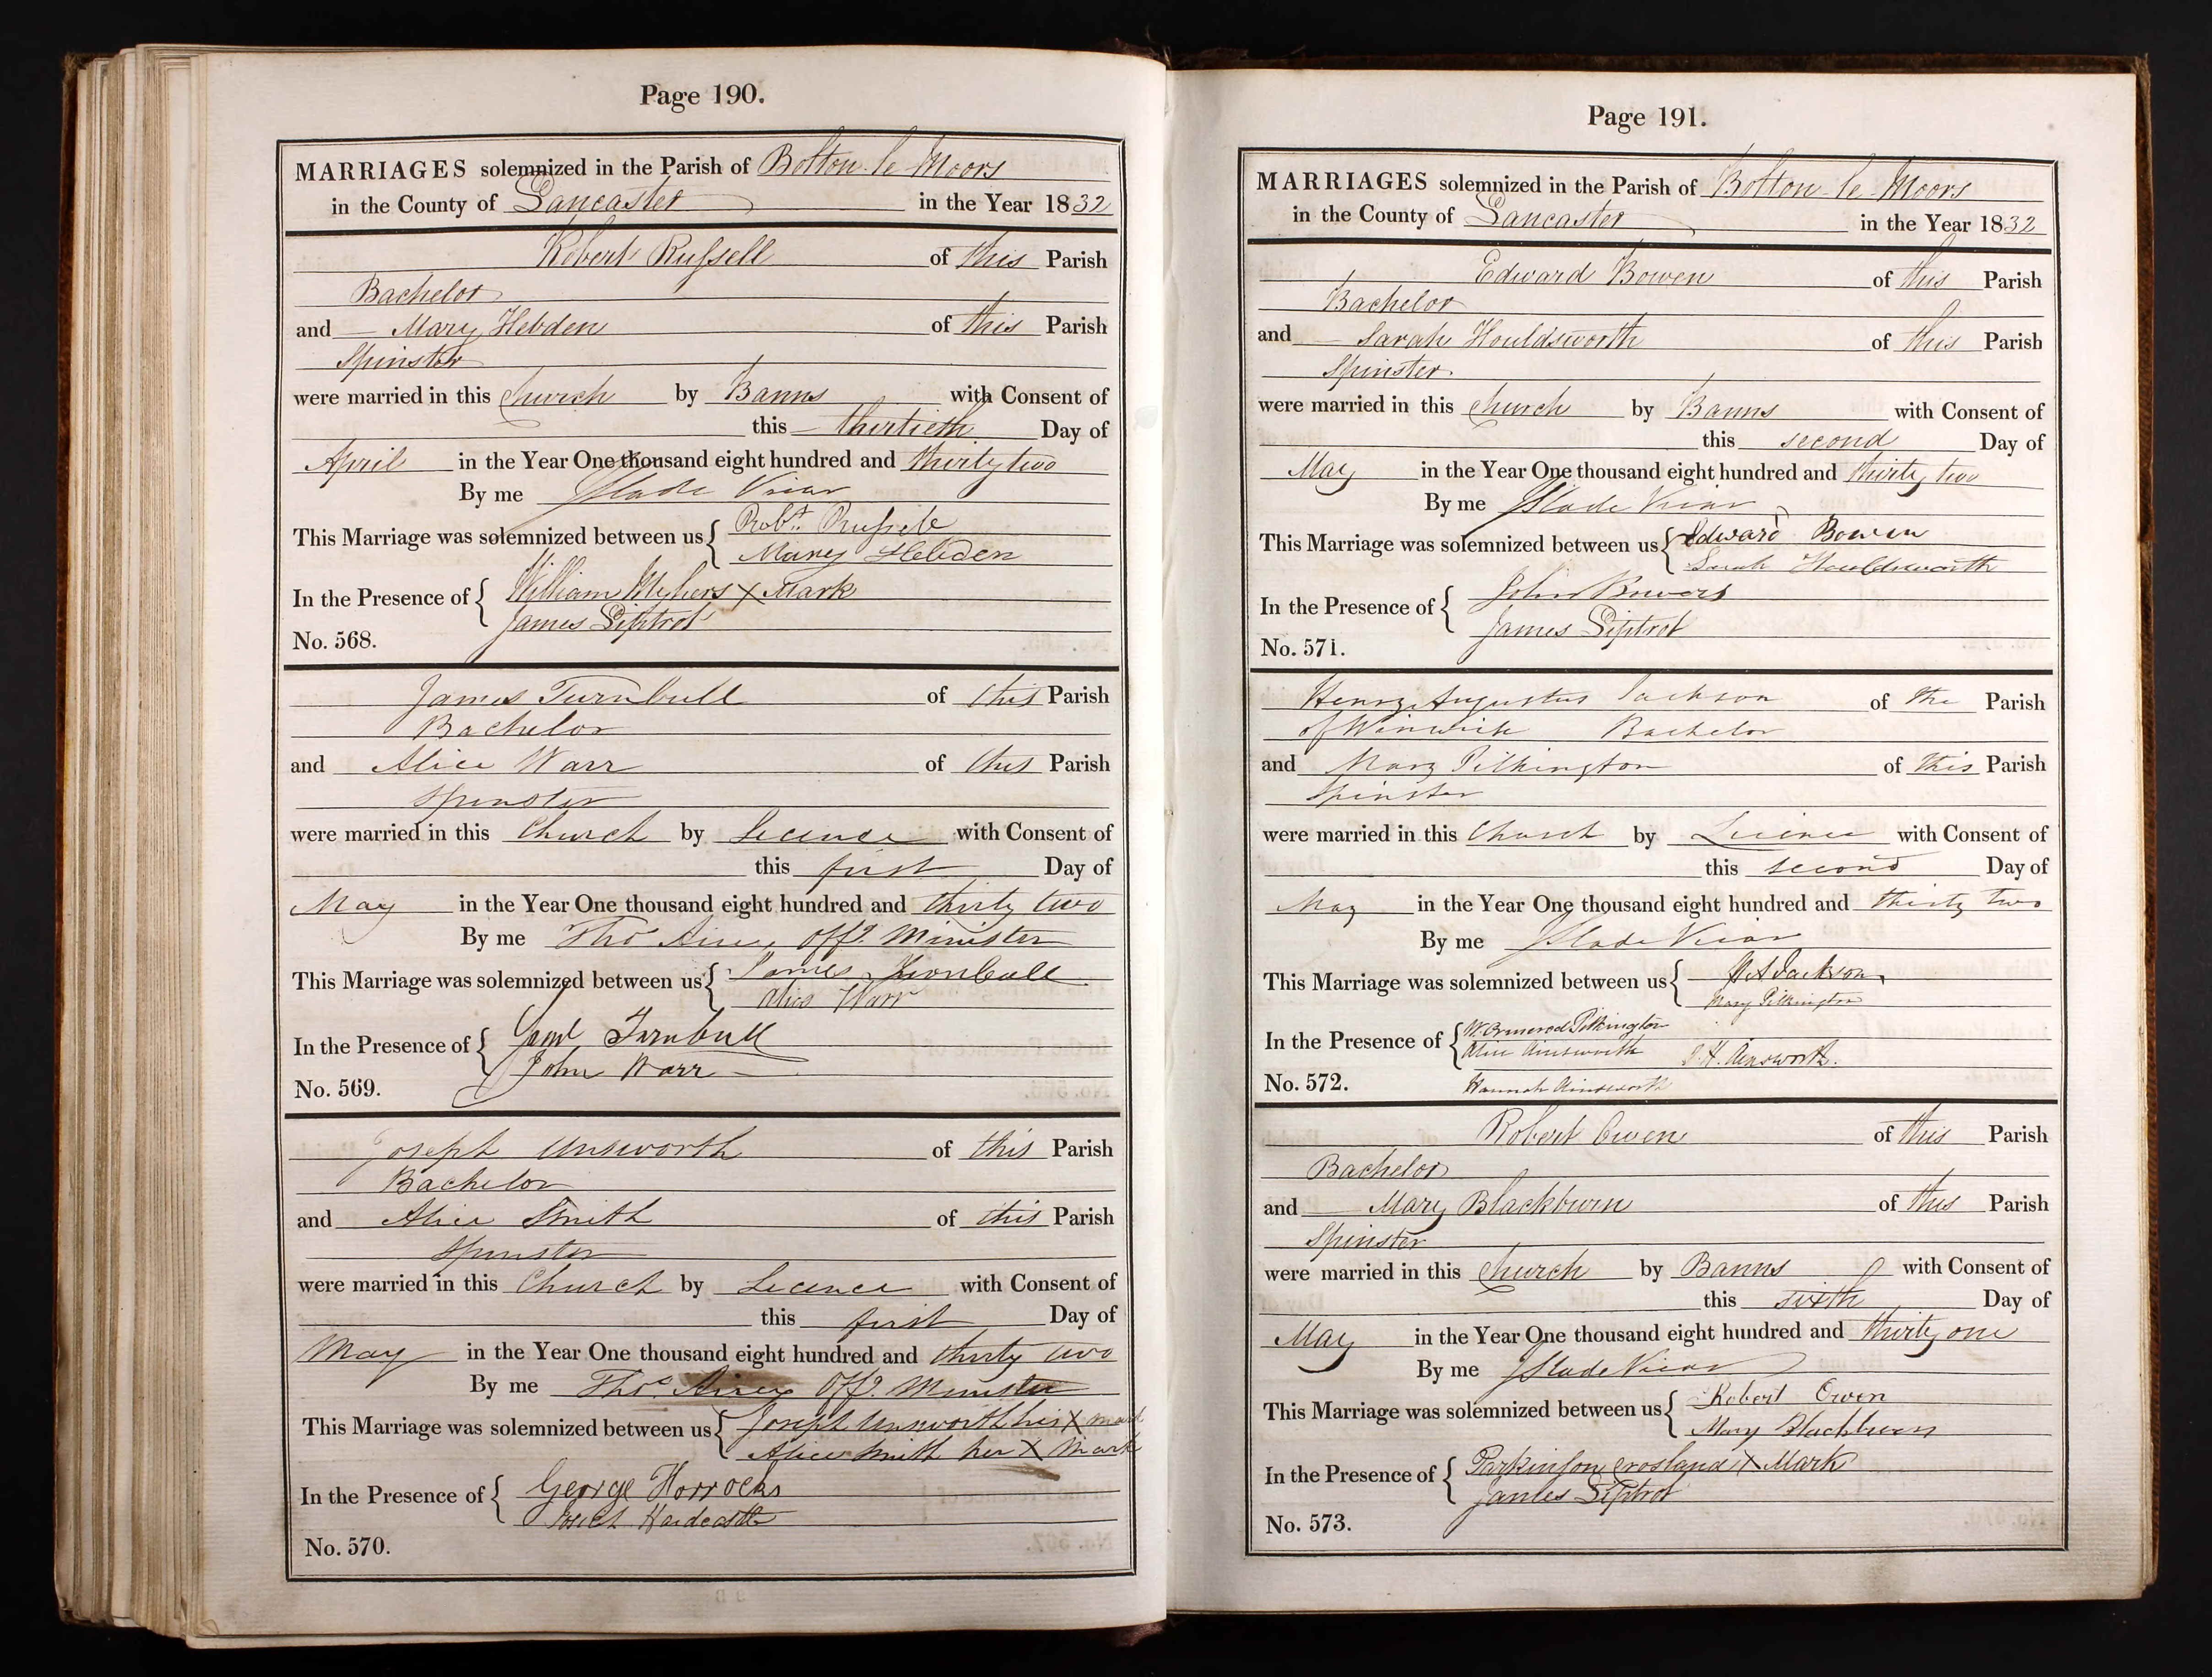 Page 190.
MARRIAGES solemnized in the Parish of Bolton-le-Moors
in the County of Lancaster in the Year 1832
Robert Russell of this Parish
Bachelor
and Mary Hebden of this Parish
Spinster
were married in this Church by Banns with Consent of
this thirtieth Day of
April in the Year One thousand eight hundred and thirty two
By me J Slade Vicar
This Marriage was solemnized between us { Robt. Russell
Mary Hebden
In the Presence of { William X Mark
James Siptrot
No. 568.
James Turnbull of this Parish
Bachelor
and Alice Warr of this Parish
Spinster
were married in this Church by Licence with Consent of
this first Day of
May in the Year One thousand eight hundred and thirty two
By me Thos Airey Offg. Minister
This Marriage was solemnized between us { James Turnbull
Alice Warr
In the Presence of { Turnbull
John Warr
No. 569.
Joseph Unsworth of this Parish
Bachelor
and Alice Smith of this Parish
Spinster
were married in this Church by Licence with Consent of
this first Day of
May in the Year One thousand eight hundred and thirty two
By me Thos. Airey Offg. Minister
This Marriage was solemnized between us { Joseph Unsworth his X mark
Alice Smith her X Mark
In the Presence of { George Horrocks
Hardcastle
No. 570.
Page 191.
MARRIAGES solemnized in the Parish of Bolton-le-Moors
in the County of Lancaster in the Year 1832
Edward Bowen of this Parish
Bachelor
and Sarah Houldsworth of this Parish
Spinster
were married in this Church by Banns with Consent of
this second Day of
May in the Year One thousand eight hundred and thirty two
By me J Slade Vicar
This Marriage was solemnized between us { Edward Bowen
Sarah Houldsworth
In the Presence of { John Bowers
James Siptrot
No. 571.
Henry Augustus Jackson of the Parish
of Winwick Bachelor
and Mary Pilkington of this Parish
Spinster
were married in this Church by Licence with Consent of
this second Day of
May in the Year One thousand eight hundred and thirty two
By me J Slade Vicar
This Marriage was solemnized between us { H A Jackson
Mary Pilkington
In the Presence of { W. Ormerod Pilkington
Alice Ainsworth J. H. Ainsworth.
No. 572. Hannah Ainsworth
Robert Owen of this Parish
Bachelor
and Mary Blackburn of this Parish
Spinster
were married in this Church by Banns with Consent of
this sixth Day of
May in the Year One thousand eight hundred and thirty one
By me J Slade Vicar
This Marriage was solemnized between us { Robert Owen
Mary Blackburn
In the Presence of { Parkinson Crosland X Mark
James Siptrot
No. 573.